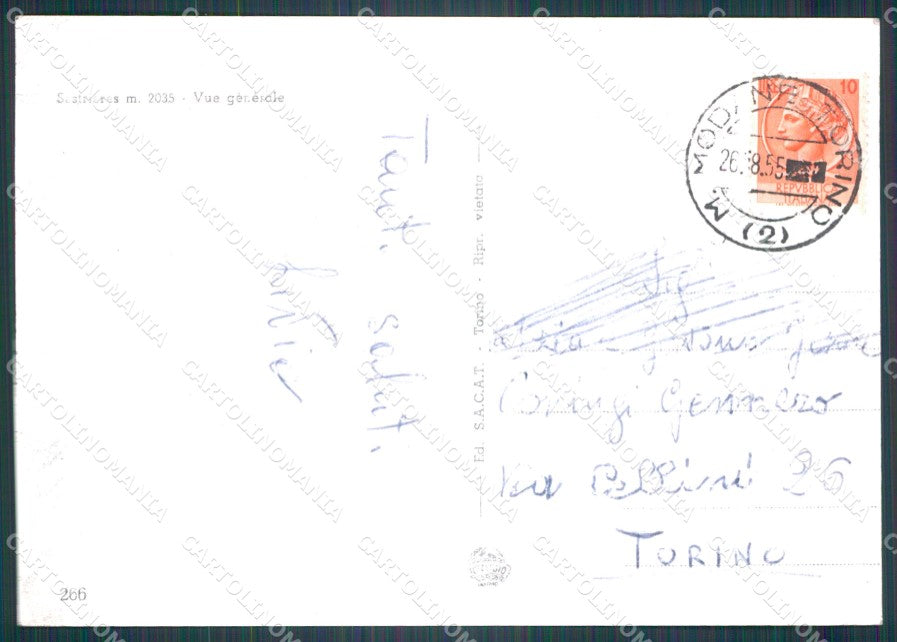 Sestrieres m. 2035 - Vue générale
Tanti saluti.
Livia
Ed. S.A.C.A.T. - Torino - Ripr. vietata
10
REPVBBLICA
ITALIANA
MODANE TORINO
26.8.55
(2)
Gennero
Via Bellini 26
TORINO
266
CARTOLINOMANIA